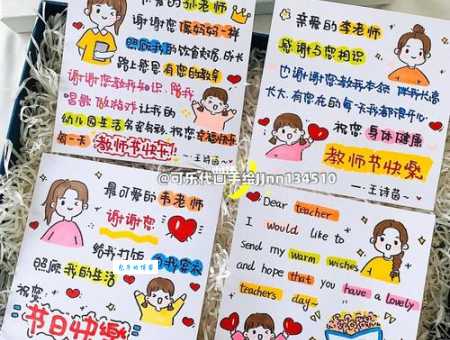 亲爱的孙老师
谢谢您像妈妈一样
照顾我的饮食 成长
路上感恩有您的教导
谢谢您教我知识、陪我
唱歌做游戏让我的
幼儿园生活 祝您
每一天
教师节快乐!
亲爱的李老师
感谢与您相识
也谢谢您教我本领 伴我长高
长大,有您在的每一天我都很开心
祝您身体健康
教师节快樂
—王诗茵~
@可乐代写手绘JJnn134510
最可爱的韦老师
谢谢您
给我打饭
照顾我的生活
祝您
节日快樂
Dear teacher
I would like to
send my warm wishes
and hope that you have a lovely
teachers day~